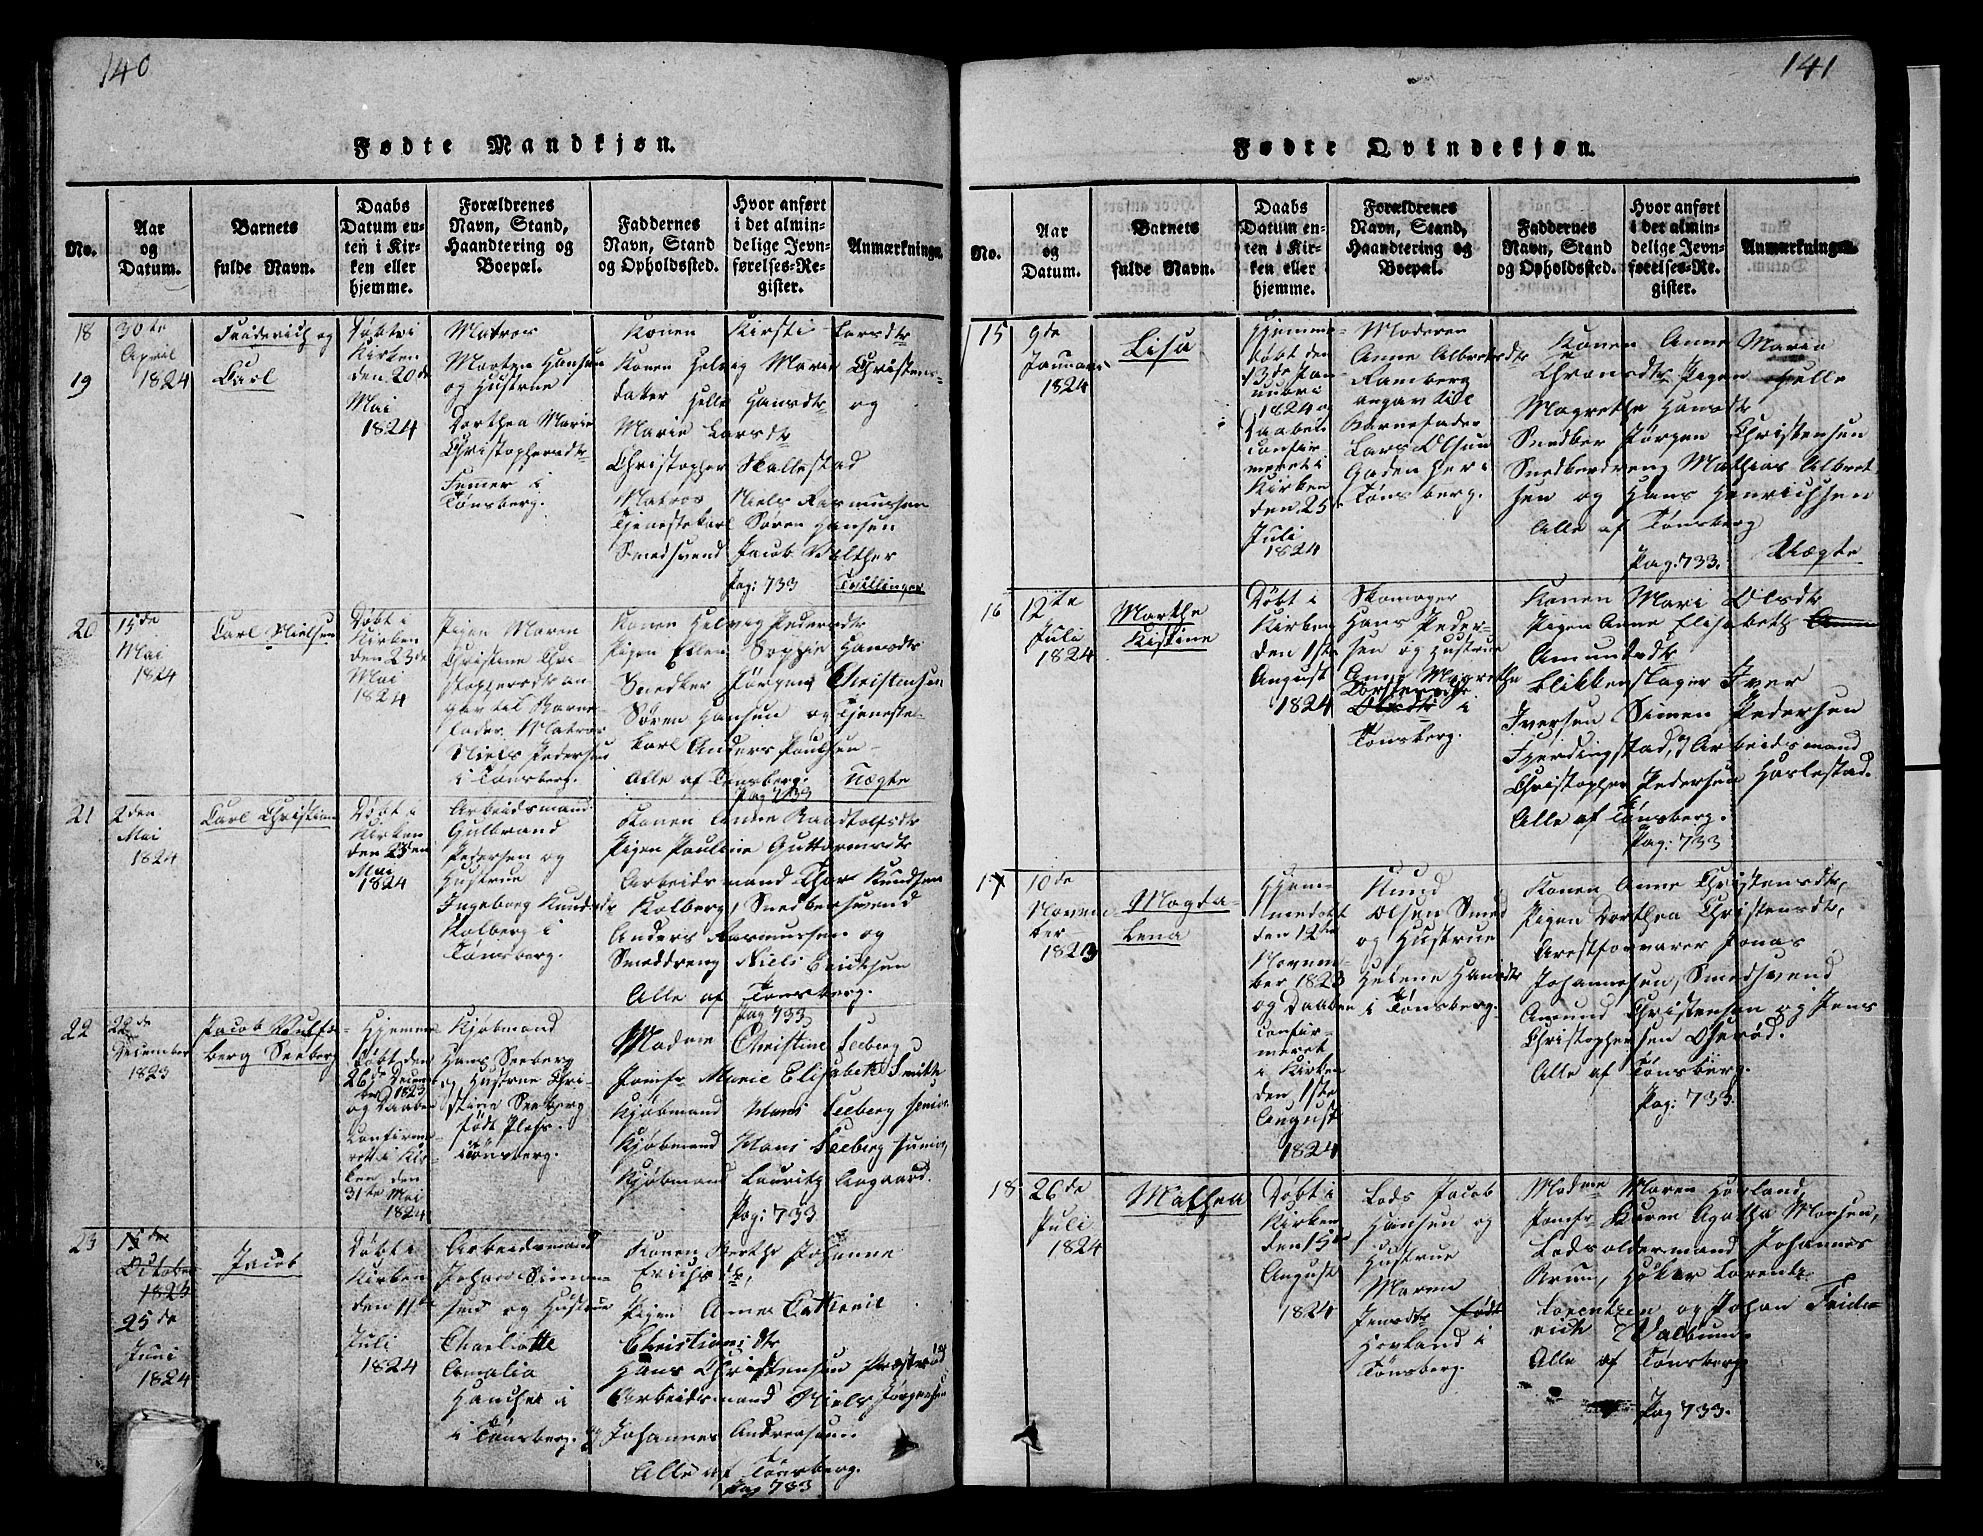 140
Fødte Mandkjøn.
No.
Aar og Datum.
Barnets fulde Navn.
Daabs Datum enten i Kirken eller hjemme.
Forældrenes Navn, Stand, Haandtering og Boepæl.
Faddernes Navn, Stand og Opholdssted.
Hvor anført i det almindelige Jevnførelses-Register.
Anmærkninger
18
19
30te
April
1824
Friderich og
Carl
Døbt i
Kirken
den 20de
Mai
1824
Matros
Morten Hansen
og Hustrue
Dorthea Marie
Christophersdtr
i
Tønsberg.
Konen Kirsti Larsdtr
Konen Helvig Marie Christens-
dater Helle Hansdtr og
Marie Larsdtr
Christopher Skallestad
Matros Niels Rasmussen
Tjenestekarl Søren Hansen
Smedsvend Jacob Walther
Pag: 733 Tvillinger
20
15de
Mai
1824
Carl Nielsen
Døbt i
Kirken
den 23de
Mai
1824
Pigen Maren
Christine Chri-
stophersdtr an-
gav til Barne-
fader, Matros
Niels Pedersen
i Tønsberg.
Konen Helvig Pedersdtr
Pigen Ellen Sophie Hansdtr
Snedker Jørgen Christensen
Søren Hansen og Tjeneste-
karl Anders Paulsen
Alle af Tønsberg.
Pag 733
Uægte
21
2den
Mai
1824
Carl Christian
Døbt i
Kirken
den 23den
Mai
1824
Arbeidsmand
Gulbrand
Pedersen og
Hustrue
Ingeborg Knudsdtr
Kolberg i
Tønsberg.
Konen Anne
Pigen Pauline Guttormsdtr
Arbeidsmand Thor Knudsen
Kolberg, Snedkersvend
Anders Rasmussen og
Smeddreng Niels Erichsen
Alle af Tønsberg.
Pag 733
22
22de
December
1823
Jacob
berg Seeberg
Hjemme-
døbt den
26de Decem-
ber 1823
og Daaben
Confirme-
ret i Kir-
ken den
31te Mai
1824
Kjøbmand
Hans Seeberg
og Hustrue Chri-
stine Seeberg
født
Tønsberg.
Madme Christine Seeberg
Jomfr Marie Elisabeth Smitte
Kjøbmand Hans Seeberg senior
Kjøbmand Hans Seeberg junior,
Kjøbmand Lauritz Aagaard.
Pag: 733
23
October
25de
Juni
1824
Jacob
Døbt i
Kirken
den 11te
Juli
1824
Arbeidsmand
Johan Simen-
sen og Hustrue
Charlotte
Amalia
i Tønsberg.
Konen Berthe Johanne
Erichsdtr,
Pigen Anne Cathrine
Christiansdtr
Hans Christensen
Arbeidsmand Niels Jørgensen
og Johannes Andreasen.
Alle af Tønsberg.
Pag 733
141
Fødte Qvindekjøn.
No.
Aar og Datum.
Barnets fulde Navn.
Daabs Datum enten i Kirken eller hjemme.
Forældrenes Navn, Stand, Haandtering og Boepæl.
Faddernes Navn, Stand og Opholdssted.
Hvor anført i det almindelige Jevnførelses-Register.
Anmærkninger
15
9de
Januari
1824
Lisa
Hjemme-
døbt den
13de Ja-
nuari
1824 og
Daaben
Confir-
meret i
Kirken
den 25
Juli
1824
Moderen
Anne Albretsdtr
Ramberg
angav til
Barnefader
Lars Olsen
her i
Tønsberg.
Konen Anne Maria
Pigen Helle
Magrethe Hansdtr
Snedker Jørgen Christensen
Snedkerdreng Mathias Albret-
sen og Hans Henrichsen
Alle af Tønsberg
Pag: 733. Uægte
16
12te
Juli
1824
Marthe
Kistine
Døbt i
Kirken
den 1ste
August
1824
Skomager
Hans Peder-
sen og Hustrue
Anne Magrethe
i
Tønsberg.
Konen Mari Olsdtr
Pigen Anne Elisabeth
Amundsdtr
Blikkenslager Iver
Iversen Simen Pedersen
Fjerdingstad, og Arbeidsmand
Christopher Pedersen Harlestad.
Alle af Tønsberg.
Pag: 733
17
10de
Novem-
ber
1823
Magda-
lena
Hjem-
medøbt
den 12te
Novem-
ber 1823
og Daaben
Confir-
meret
i Kirken
den 1ste
August
1824
Knud
Olsen Smed
og Hustrue
Helene Hansdtr
i Tønsberg.
Konen Anne Christensdtr,
Pigen Dorthea Christensdtr,
Arestforvarer Jonas
Johannesen, Smedsvend
Amund Christensen og Jens
Christophersen Oserød.
Alle af Tønsberg.
Pag: 733.
18
26de
Juli
1824
Mathea
Døbt i
Kirken
den 15de
August
1824
Lods Jacob
Hansen og
Hustrue
Maren
Jensdtr født
Hovland i
Tønsberg.
Madme Maren Hovland,
Jomfr Karen Agatha Monsen,
Lodsoldermand Johannes
Bruun, Høker Lorentz
Lorentzen og Johan Fride-
rich Walbum.
Alle af Tønsberg
Pag 733.